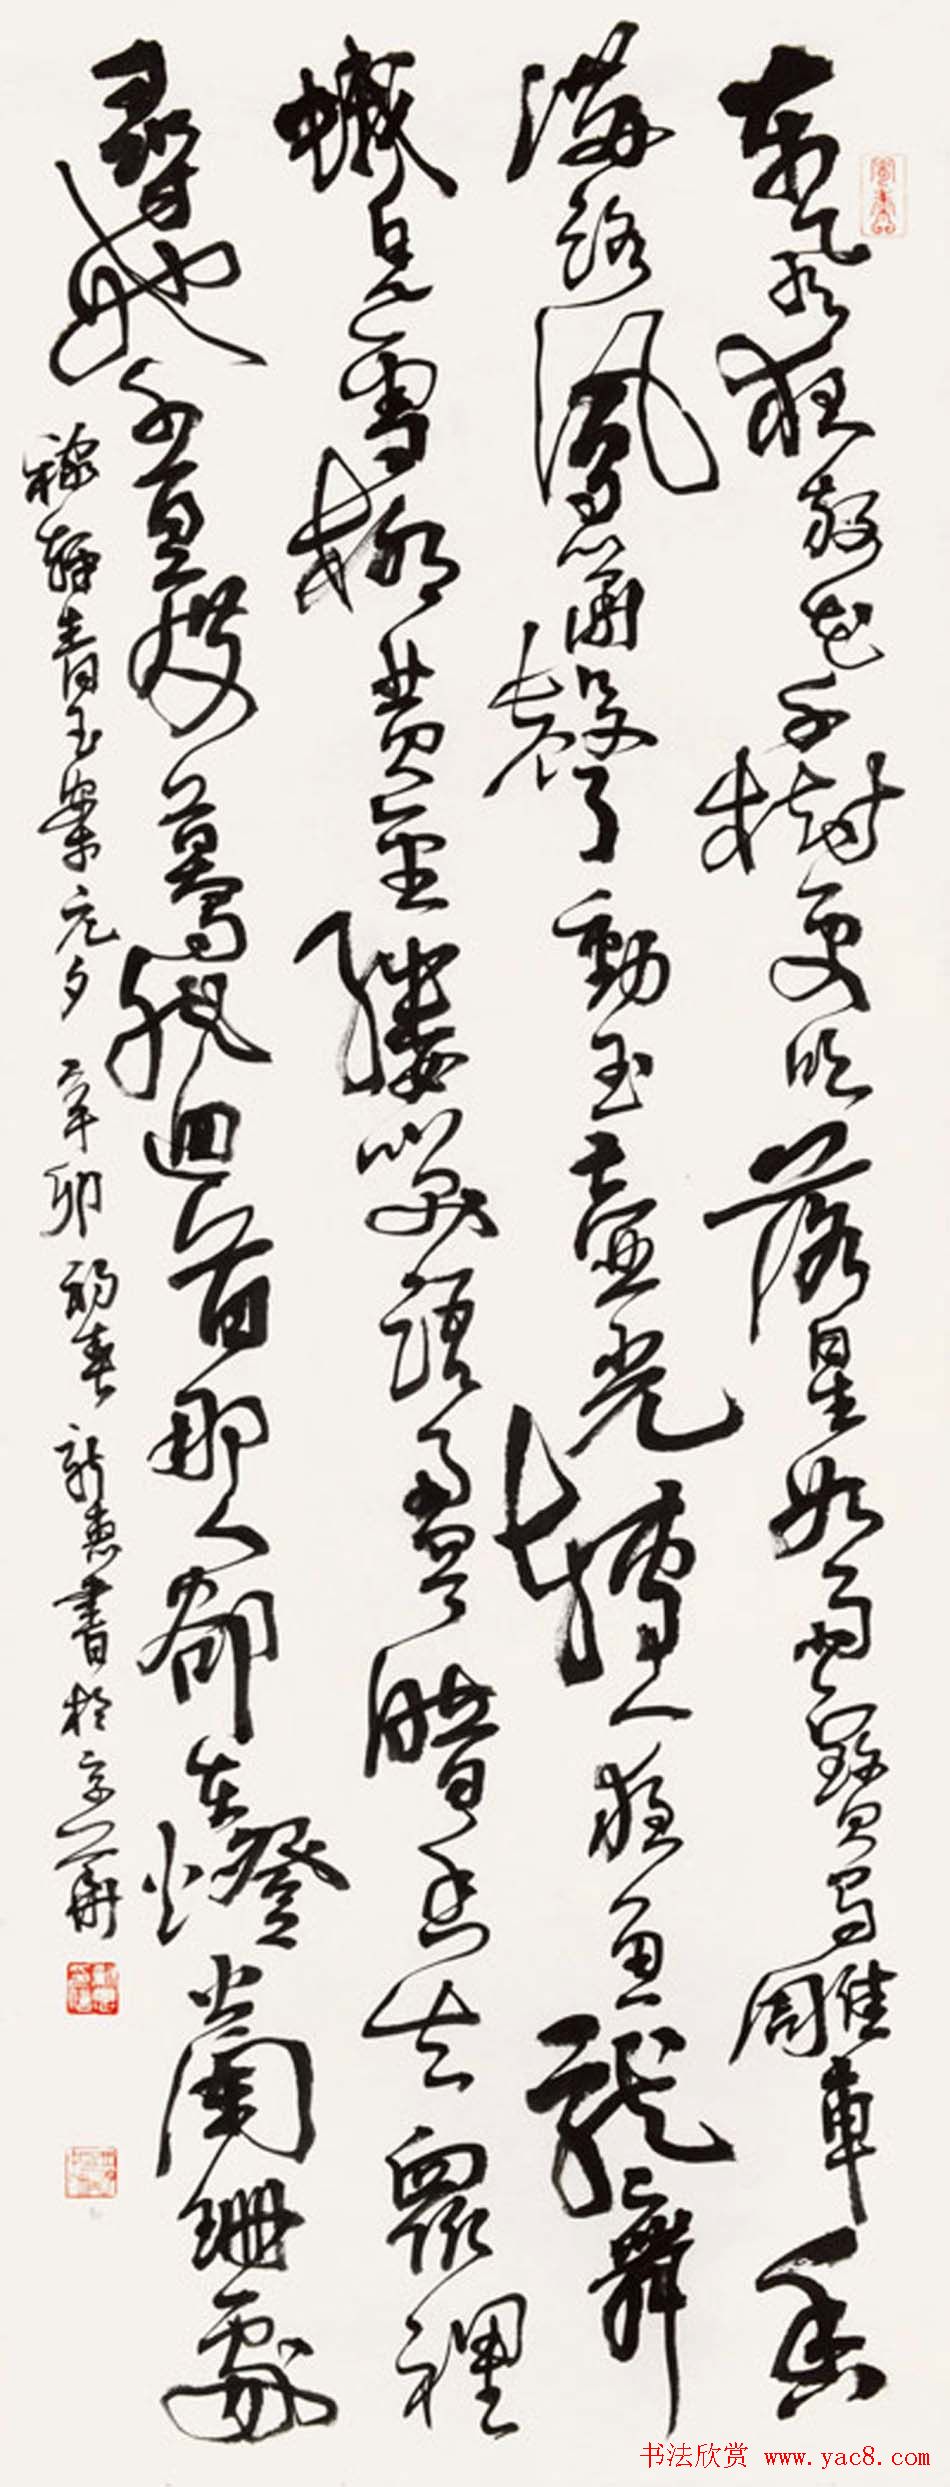 東風夜放花千樹更吹落星如雨寶馬雕車香
滿路鳳簫聲動玉壺光轉一夜魚龍舞
蛾兒雪柳黃金縷笑語盈盈暗香去衆裡
尋他千百度驀然迴首那人卻在燈火闌珊處
稼軒青玉案元夕 辛卯初春 書於京華
书法欣赏 www.yac8.com